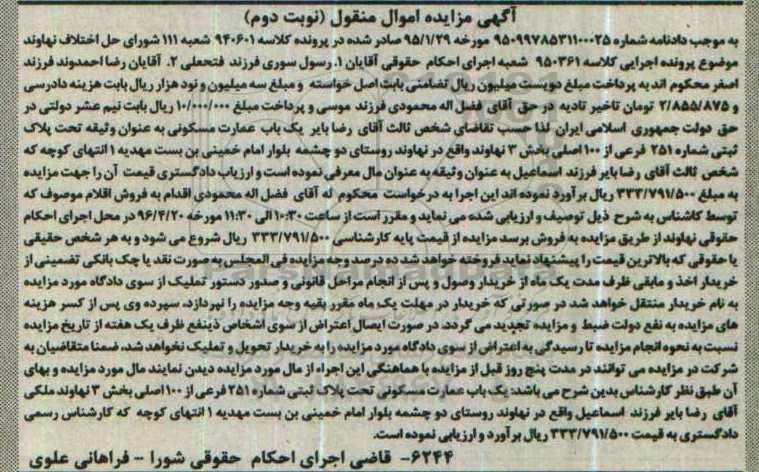 آگهی مزایده اموال منقول (نوبت دوم)
به موجب دادنامه شماره ۹۵۰۹۹۷۸۵۳۱۱۰۰۰۲۵ مورخه ۹۵/۱/۲۹ صادر شده در پرونده کلاسه ۹۴۰۶۰۱ شعبه ۱۱۱ شورای حل اختلاف نهاوند
موضوع پرونده اجرایی کلاسه ۹۵۰۳۶۱ شعبه اجرای احکام حقوقی آقایان ۱. رسول سوری فرزند فتحعلی ۲. آقایان رضا احمدوند فرزند
اصغر محکوم اند به پرداخت مبلغ دویست میلیون ریال تضامنی بابت اصل خواسته و مبلغ سه میلیون و نود هزار ریال بابت هزینه دادرسی
و ۲/۸۵۵/۸۷۵ تومان تاخیر تادیه در حق آقای فضل اله محمودی فرزند موسی و پرداخت مبلغ ۱۰/۰۰۰/۰۰۰ ریال بابت نیم عشر دولتی در
حق دولت جمهوری اسلامی ایران لذا حسب تقاضای شخص ثالث آقای رضا بایر یک باب عمارت مسکونی به عنوان وثیقه تحت پلاک
ثبتی شماره ۲۵۱ فرعی از ۱۰۰ اصلی بخش ۳ نهاوند واقع در نهاوند روستای دو چشمه بلوار امام خمینی بن بست مهدیه ۱ انتهای کوچه که
شخص ثالث آقای رضا بایر فرزند اسماعیل به عنوان وثیقه به عنوان مال معرفی نموده است و ارزیاب دادگستری قیمت آن را جهت مزایده
به مبلغ ۳۳۳/۷۹۱/۵۰۰ ریال برآورد نموده اند این اجرا به درخواست محکوم له آقای فضل اله محمودی اقدام به فروش اقلام موصوف که
توسط کاشناس به شرح ذیل توصیف و ارزیابی شده می نماید و مقرر است از ساعت ۱۰:۳۰ الی ۱۱:۳۰ مورخه ۹۶/۴/۲۰ در محل اجرای احکام
حقوقی نهاوند از طریق مزایده به فروش برسد مزایده از قیمت پایه کارشناسی ۳۳۳/۷۹۱/۵۰۰ ریال شروع می شود و به هر شخص حقیقی
یا حقوقی که بالاترین قیمت را پیشنهاد نماید فروخته خواهد شد ده درصد وجه مزایده فی المجلس به صورت نقد یا چک بانکی تضمینی از
خریدار اخذ و مابقی ظرف مدت یک ماه از خریدار وصول و پس از انجام مراحل قانونی و صدور دستور تملیک از سوی دادگاه مورد مزایده
به نام خریدار منتقل خواهد شد در صورتی که خریدار در مهلت یک ماه مقرر بقیه وجه مزایده را نپردازد، سپرده وی پس از کسر هزینه
های مزایده به نفع دولت ضبط و مزایده تجدید می گردد. در صورت ایصال اعتراض از سوی اشخاص ذینفع ظرف یک هفته از تاریخ مزایده
نسبت به نحوه انجام مزایده تا رسیدگی به اعتراض از سوی دادگاه مورد مزایده را به خریدار تحویل و تملیک نخواهد شد، ضمنا متقاضیان به
شرکت در مزایده می توانند در مدت پنج روز قبل از مزایده با هماهنگی این اجراء از مال مورد مزایده دیدن نمایند مال مورد مزایده و بهای
آن طبق نظر کارشناس بدین شرح می باشد: یک باب عمارت مسکونی تحت پلاک ثبتی شماره ۲۵۱ فرعی از ۱۰۰ اصلی بخش ۳ نهاوند ملکی
آقای رضا بایر فرزند اسماعیل واقع در نهاوند روستای دو چشمه بلوار امام خمینی بن بست مهدیه ۱ انتهای کوچه که کارشناس رسمی
دادگستری به قیمت ۳۳۳/۷۹۱/۵۰۰ ریال برآورد و ارزیابی نموده است.
۶۲۴۴- قاضی اجرای احکام حقوقی شورا - فراهانی علوی